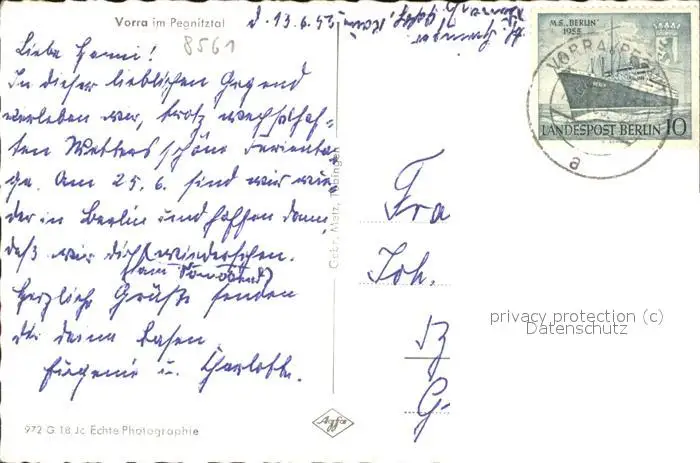 Vorra im Pegnitztal
8561
d. 13.6.53
Liebe Henni!
In dieser lieblichen Gegend
verleben wir, trotz wechselhaf-
ten Wetters schöne Ferienta-
ge. Am 25. 6. sind wir wie-
der in Berlin und hoffen dann,
daß wir dich wiedersehen.
(am Sonnabend)
Herzliche Grüße senden
dir deine Basen
Eugenie u. Charlotte.
972 G 18 Jc Echte Photographie
Gebr. Metz, Tübingen
Agfa
M.S. „BERLIN"
1955
LANDESPOST BERLIN 10
VORRA (PEG
a
Fra
Joh.
G
privacy protection (c)
Datenschutz